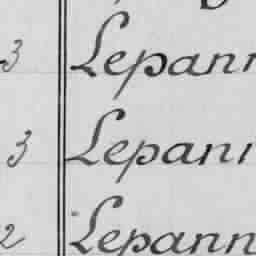 3 Lepann
3 Lepani
2 Lepann